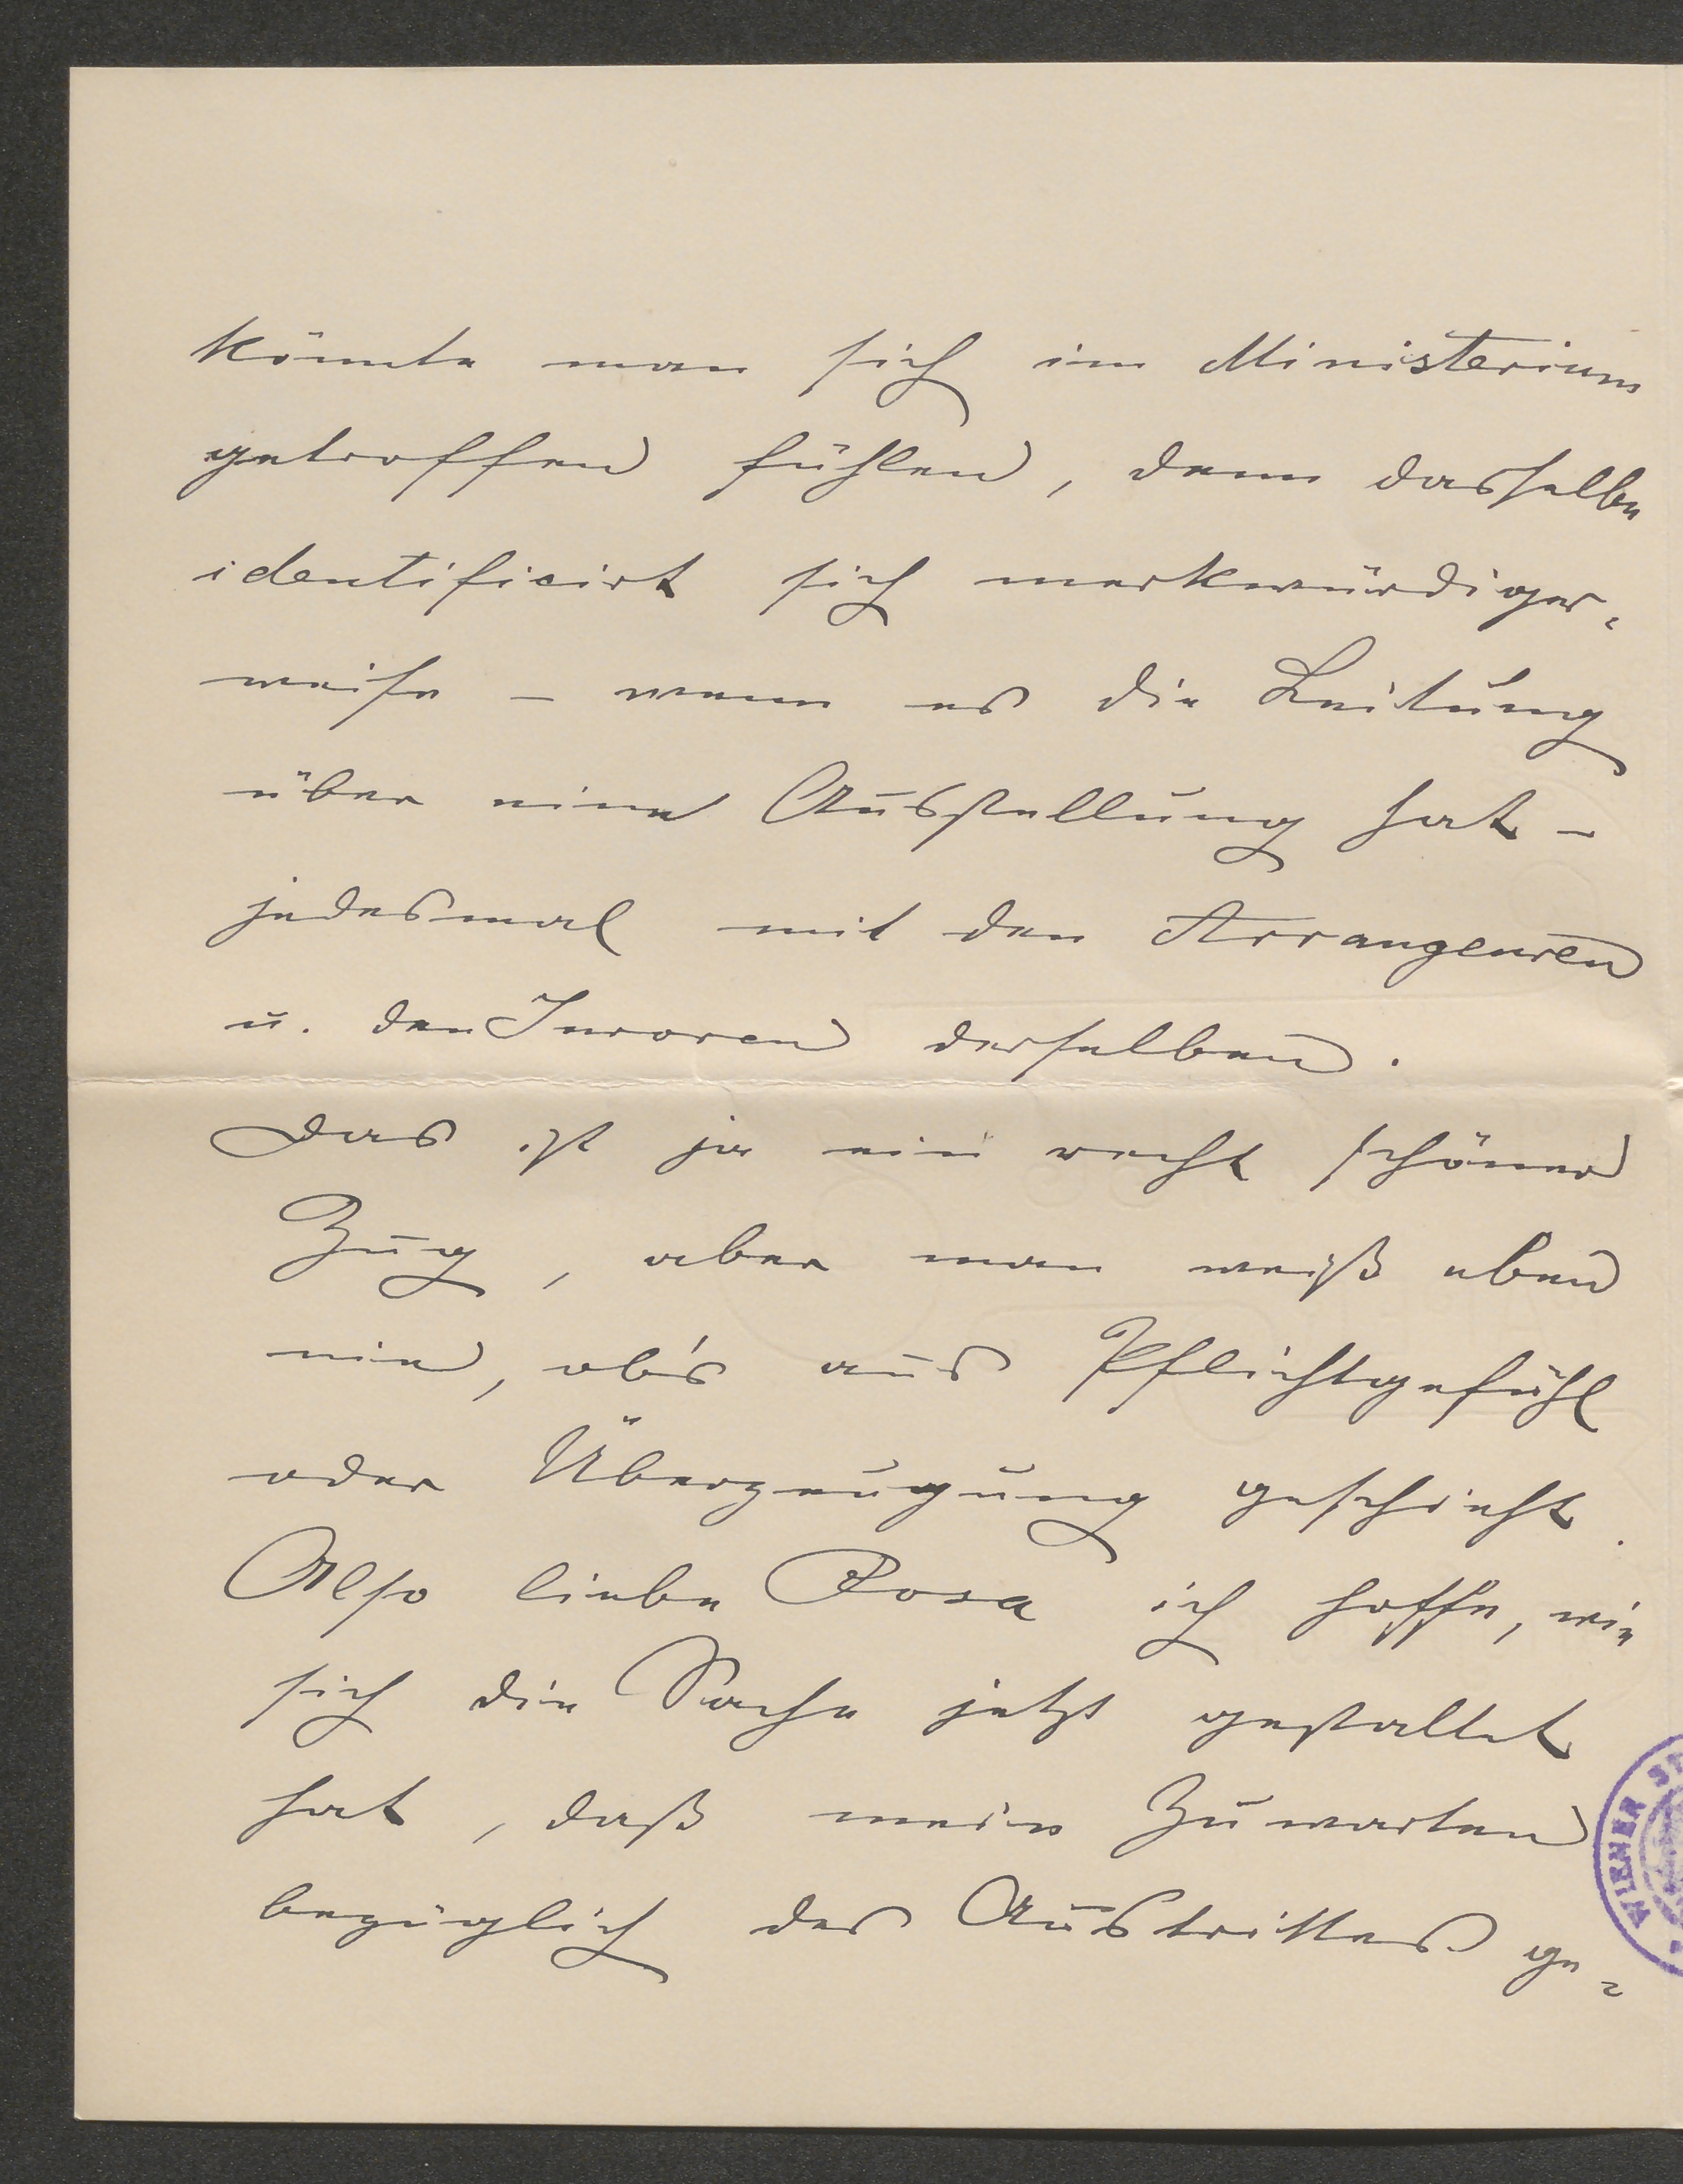 könnte man sich im Ministerium
getroffen fühlen, denn dasselbe
identificirt sich merkwürdiger-
weise – wenn es die Leitung
über eine Ausstellung hat –
jedesmal mit den Arrangeuren
u. den Juroren derselben.
Das ist ja ein recht schöner
Zug, aber man weiß eben
nie, ob's aus Pflichtgefühl
oder Überzeugung geschieht.
Also liebe Rosa ich hoffe, wie
sich die Sache jetzt gestaltet
hat, daß mein Zuwarten
bezüglich des Austrittes ge-
WIENER